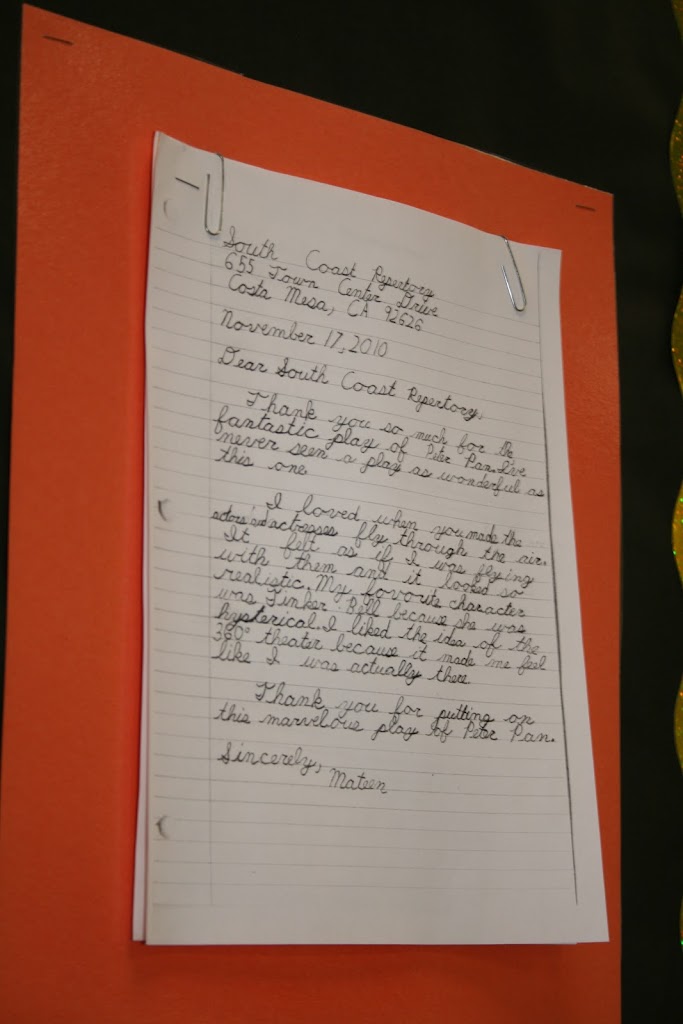 South Coast Repertory
655 Town Center Drive
Costa Mesa, CA 92626
November 17, 2010
Dear South Coast Repertory,
Thank you so much for the
fantastic play of Peter Pan. I've
never seen a play as wonderful as
this one.
I loved when you made the
actors and actresses fly through the air.
It felt as if I was flying
with them and it looked so
realistic. My favorite character
was Tinker Bell because she was
hysterical. I liked the idea of the
360° theater because it made me feel
like I was actually there.
Thank you for putting on
this marvelous play of Peter Pan.
Sincerely,
Mateen